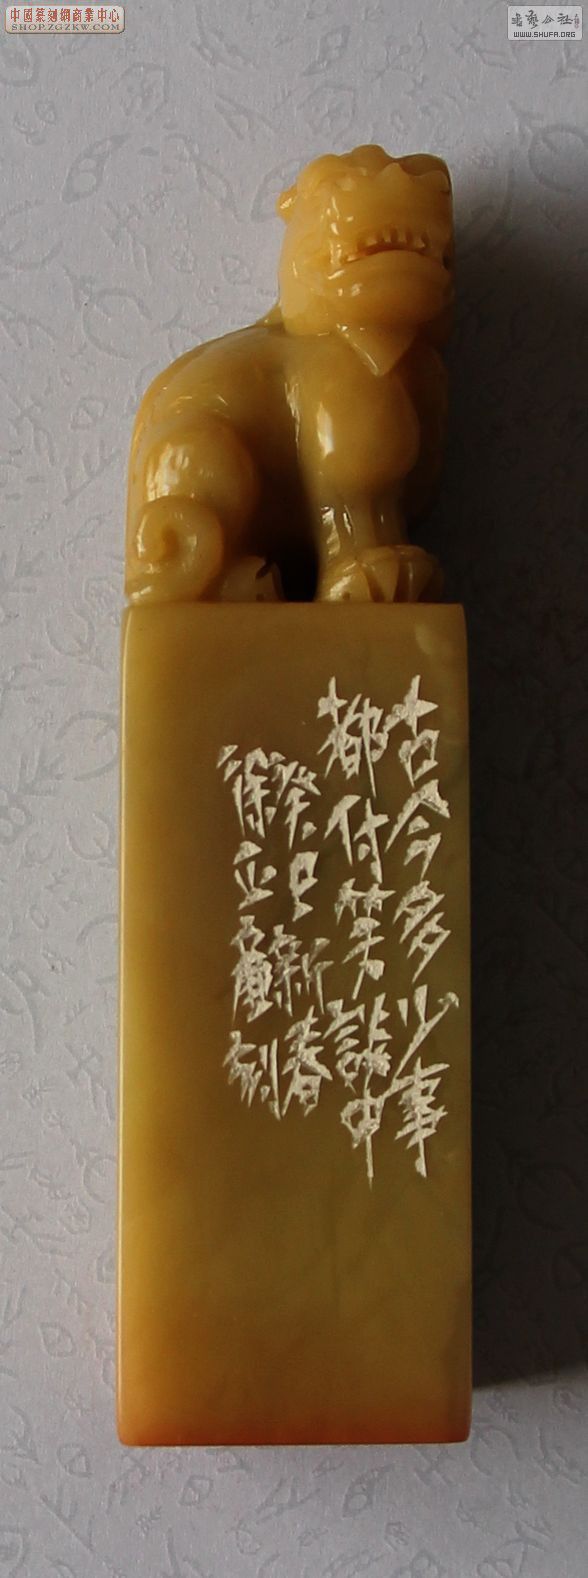 中國篆刻網商業中心
SHOP.ZGZKW.COM
書藝公社
WWW.SHUFA.ORG
古今多少事
都付笑談中
癸巳新春
徐正廉刻